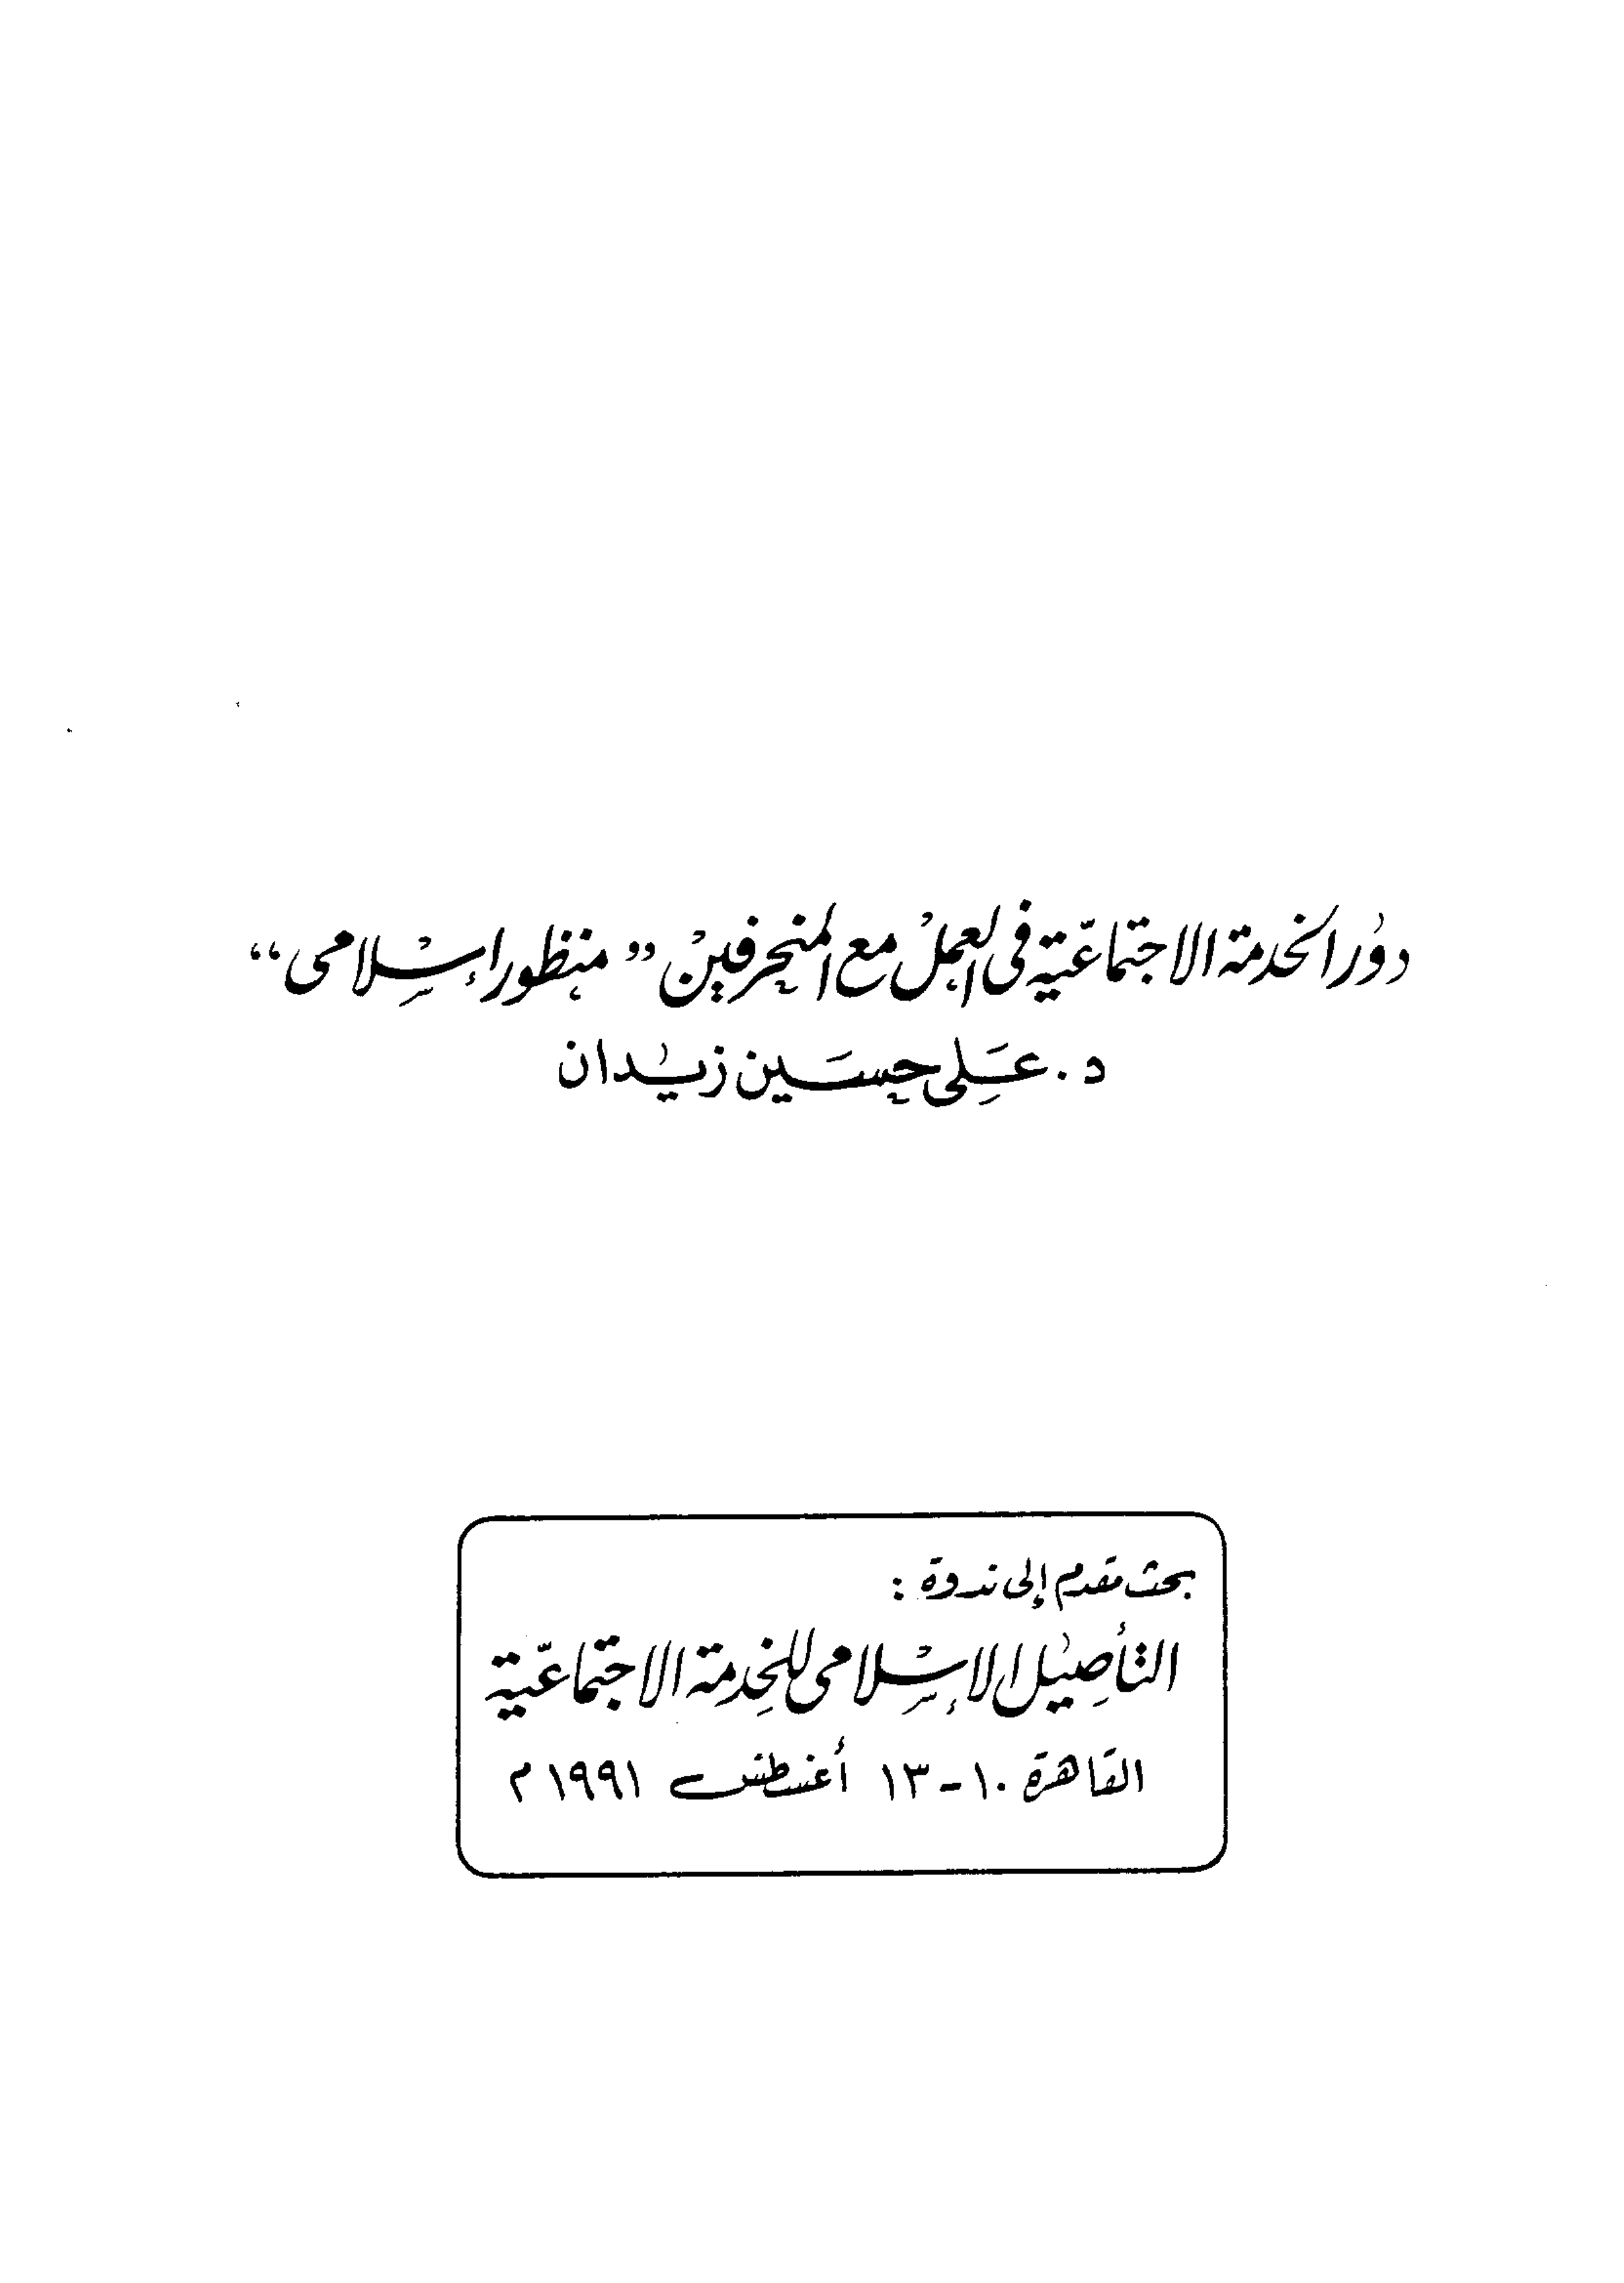 دور الخدمة الاجتماعية فى العمل مع المنحرفين "منظور إسلامى"
د. على حسين زيدان
بحث مقدم إلى ندوة:
التأصيل الإسلامى للخدمة الاجتماعية
القاهرة ١٠-١٣ أغسطس ١٩٩١ م